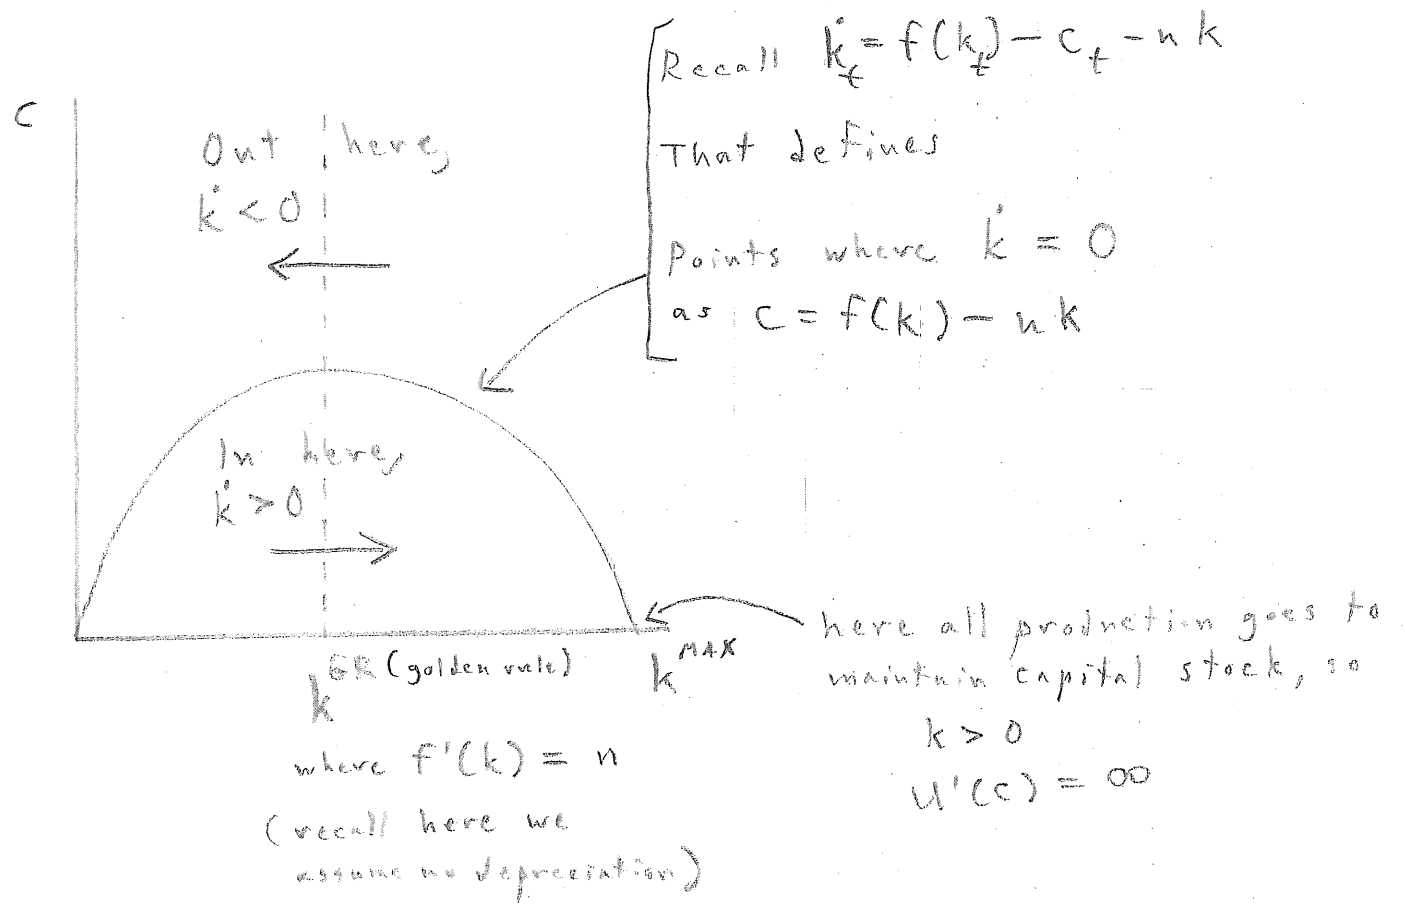 Recall k̇_t = f(k_t) - c_t - n k
That defines
points where k̇ = 0
as c = f(k) - n k
c
Out here,
k̇ < 0
In here,
k̇ > 0
k^GR (golden rule)
k^MAX
where f'(k) = n
(recall here we
assume no depreciation)
here all production goes to
maintain capital stock, so
k > 0
u'(c) = ∞